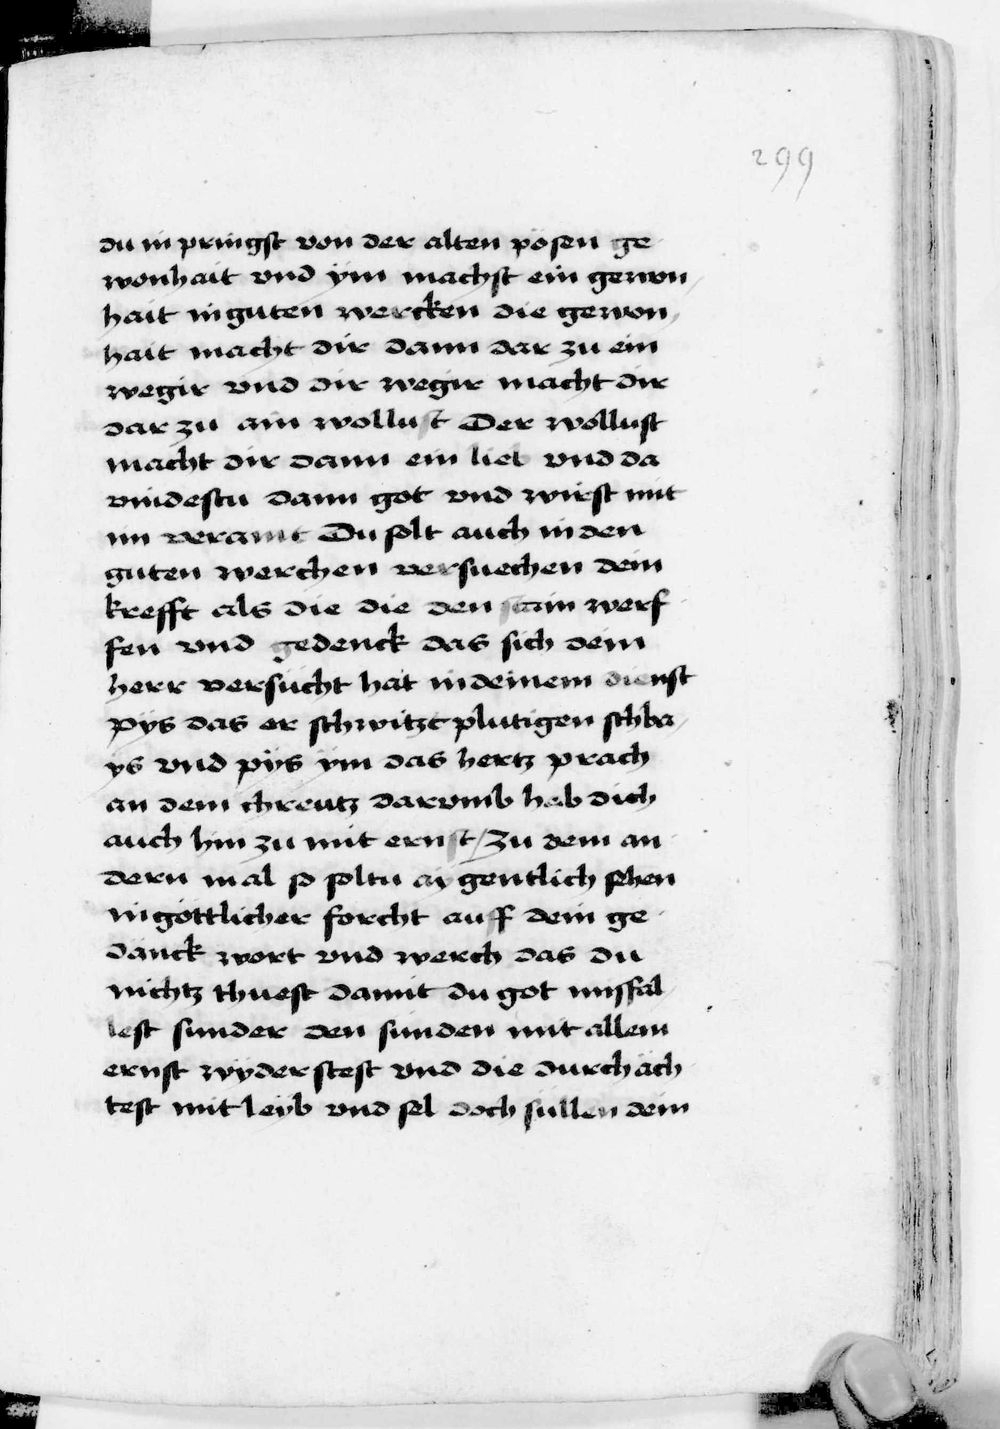 299
du in pringst von der alten pösen ge
wonhait vnd ym machst ein gewon
hait in guten wercken die gewon
hait macht dir dann dar zu ein
wegir vnd dir wegir macht dir
dar zu ain wollust Der wollust
macht dir dann ein lieb vnd da
vindestu dann got vnd wirst mit
im veraint Du solt auch in den
guten werchen versuechen dein
krefft als die die den stain werf
fen vnd gedenck das sich dein
herr versücht hat in deinem dienst
pys das er schwitzt plutigen schba
ys vnd pys ym das hertz prach
an dem chreutz darvmb heb dich
auch hin zu mit ernst / Zu dem an
dern mal so soltu aygentlich sehen
in göttlicher forcht auff dein ge
danck wort vnd werch das du
nichtz thuest damit du got missfal
lest sunder den sünden mit allem
ernst wyderstest vnd die durchäch
test mit leyb vnd sel doch süllen dein